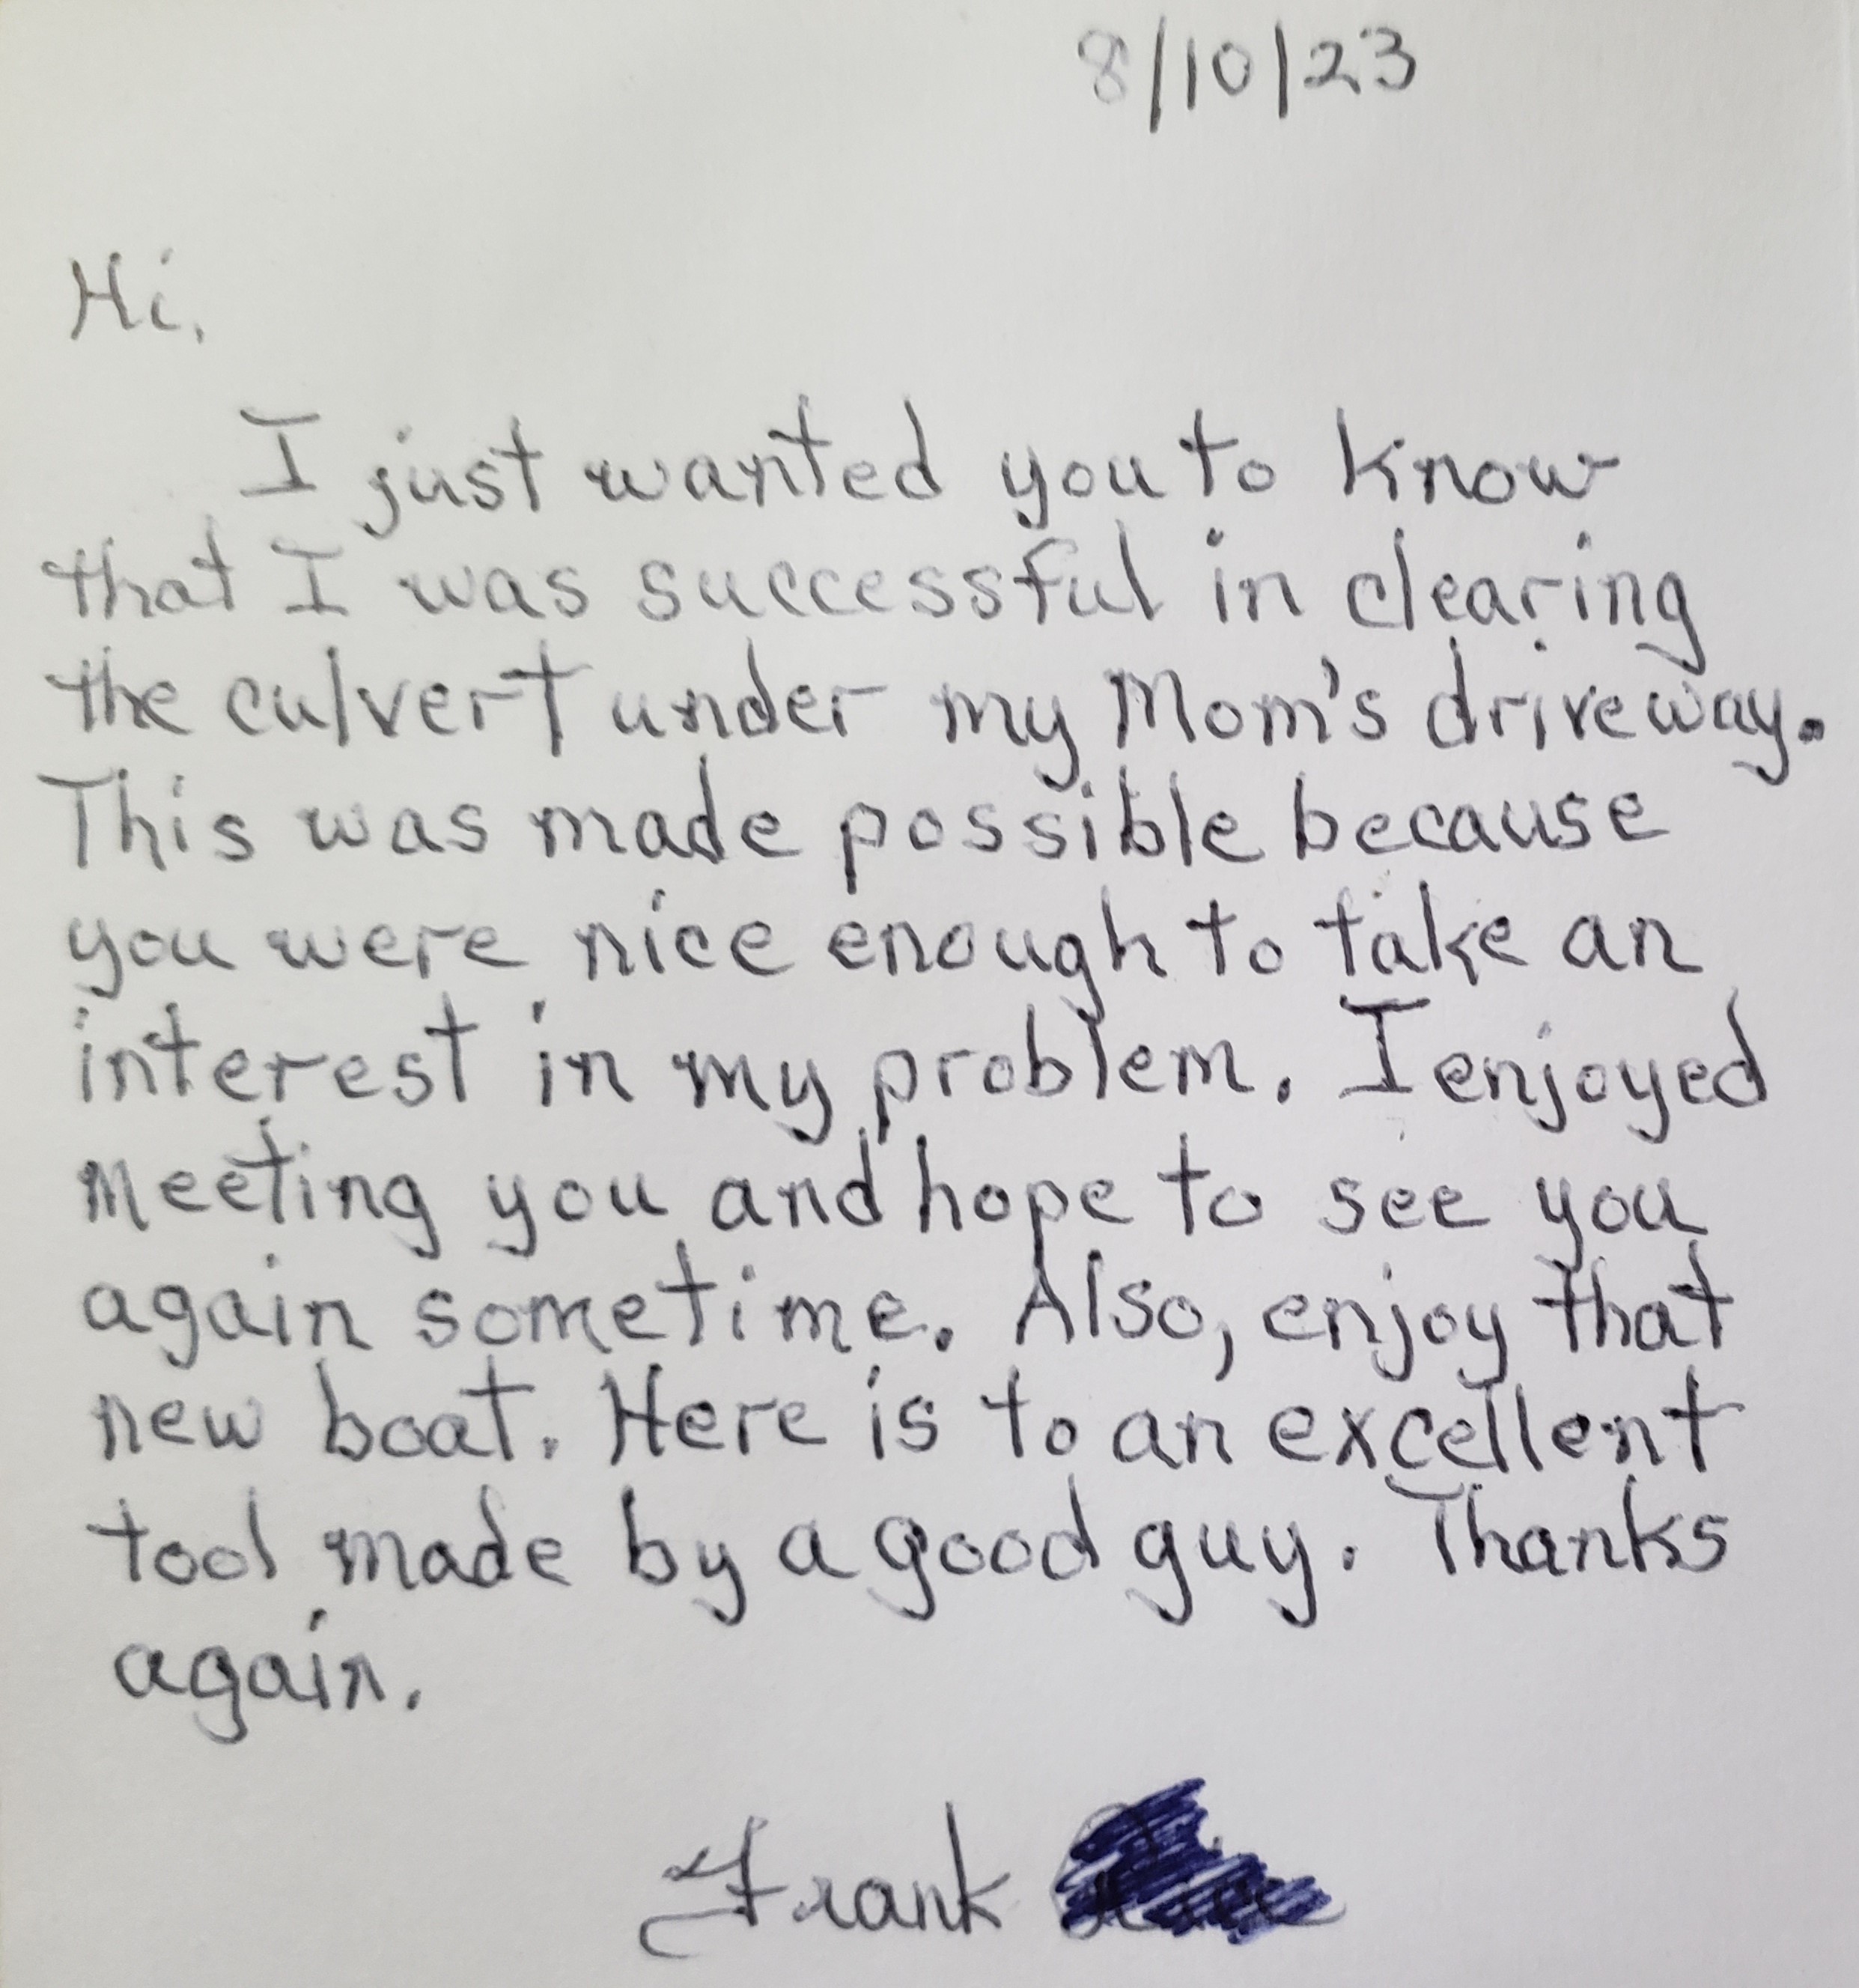 8/10/23
Hi.
I just wanted you to know
that I was successful in clearing
the culvert under my Mom's driveway.
This was made possible because
you were nice enough to take an
interest in my problem. I enjoyed
meeting you and hope to see you
again sometime. Also, enjoy that
new boat. Here is to an excellent
tool made by a good guy. Thanks
again.
Frank